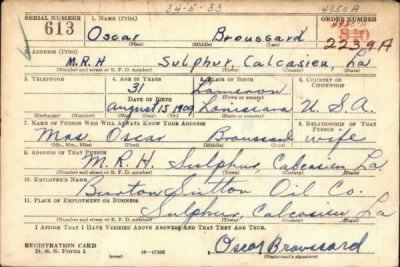 34-5-33 4950A
SERIAL NUMBER 1. NAME (Print) ORDER NUMBER
613 Oscar Broussard 2239A
(First) (Middle) (Last)
2. ADDRESS (Print)
M.R.H Sulphur, Calcasieu, La
(Number and street or R. F. D. number) (Town) (County) (State)
3. TELEPHONE 4. AGE IN YEARS 5. PLACE OF BIRTH 6. COUNTRY OF CITIZENSHIP
31 Cameron
DATE OF BIRTH (Town or county)
August 15 1909 Louisiana U.S.A.
(Exchange) (Number) (Mo.) (Day) (Yr.) (State or country)
7. NAME OF PERSON WHO WILL ALWAYS KNOW YOUR ADDRESS 8. RELATIONSHIP OF THAT PERSON
Mrs. Oscar Broussard wife
(Mr., Mrs., Miss) (First) (Middle) (Last)
9. ADDRESS OF THAT PERSON
M.R.H. Sulphur, Calcasieu La
(Number and street or R. F. D. number) (Town) (County) (State)
10. EMPLOYER'S NAME
Burton Sutton Oil Co.
11. PLACE OF EMPLOYMENT OR BUSINESS
Sulphur, Calcasieu La
(Number and street or R. F. D. number) (Town) (County) (State)
I AFFIRM THAT I HAVE VERIFIED ABOVE ANSWERS AND THAT THEY ARE TRUE.
REGISTRATION CARD Oscar Broussard
D. S. S. Form 1 (over) 16-17105 (Registrant's signature)